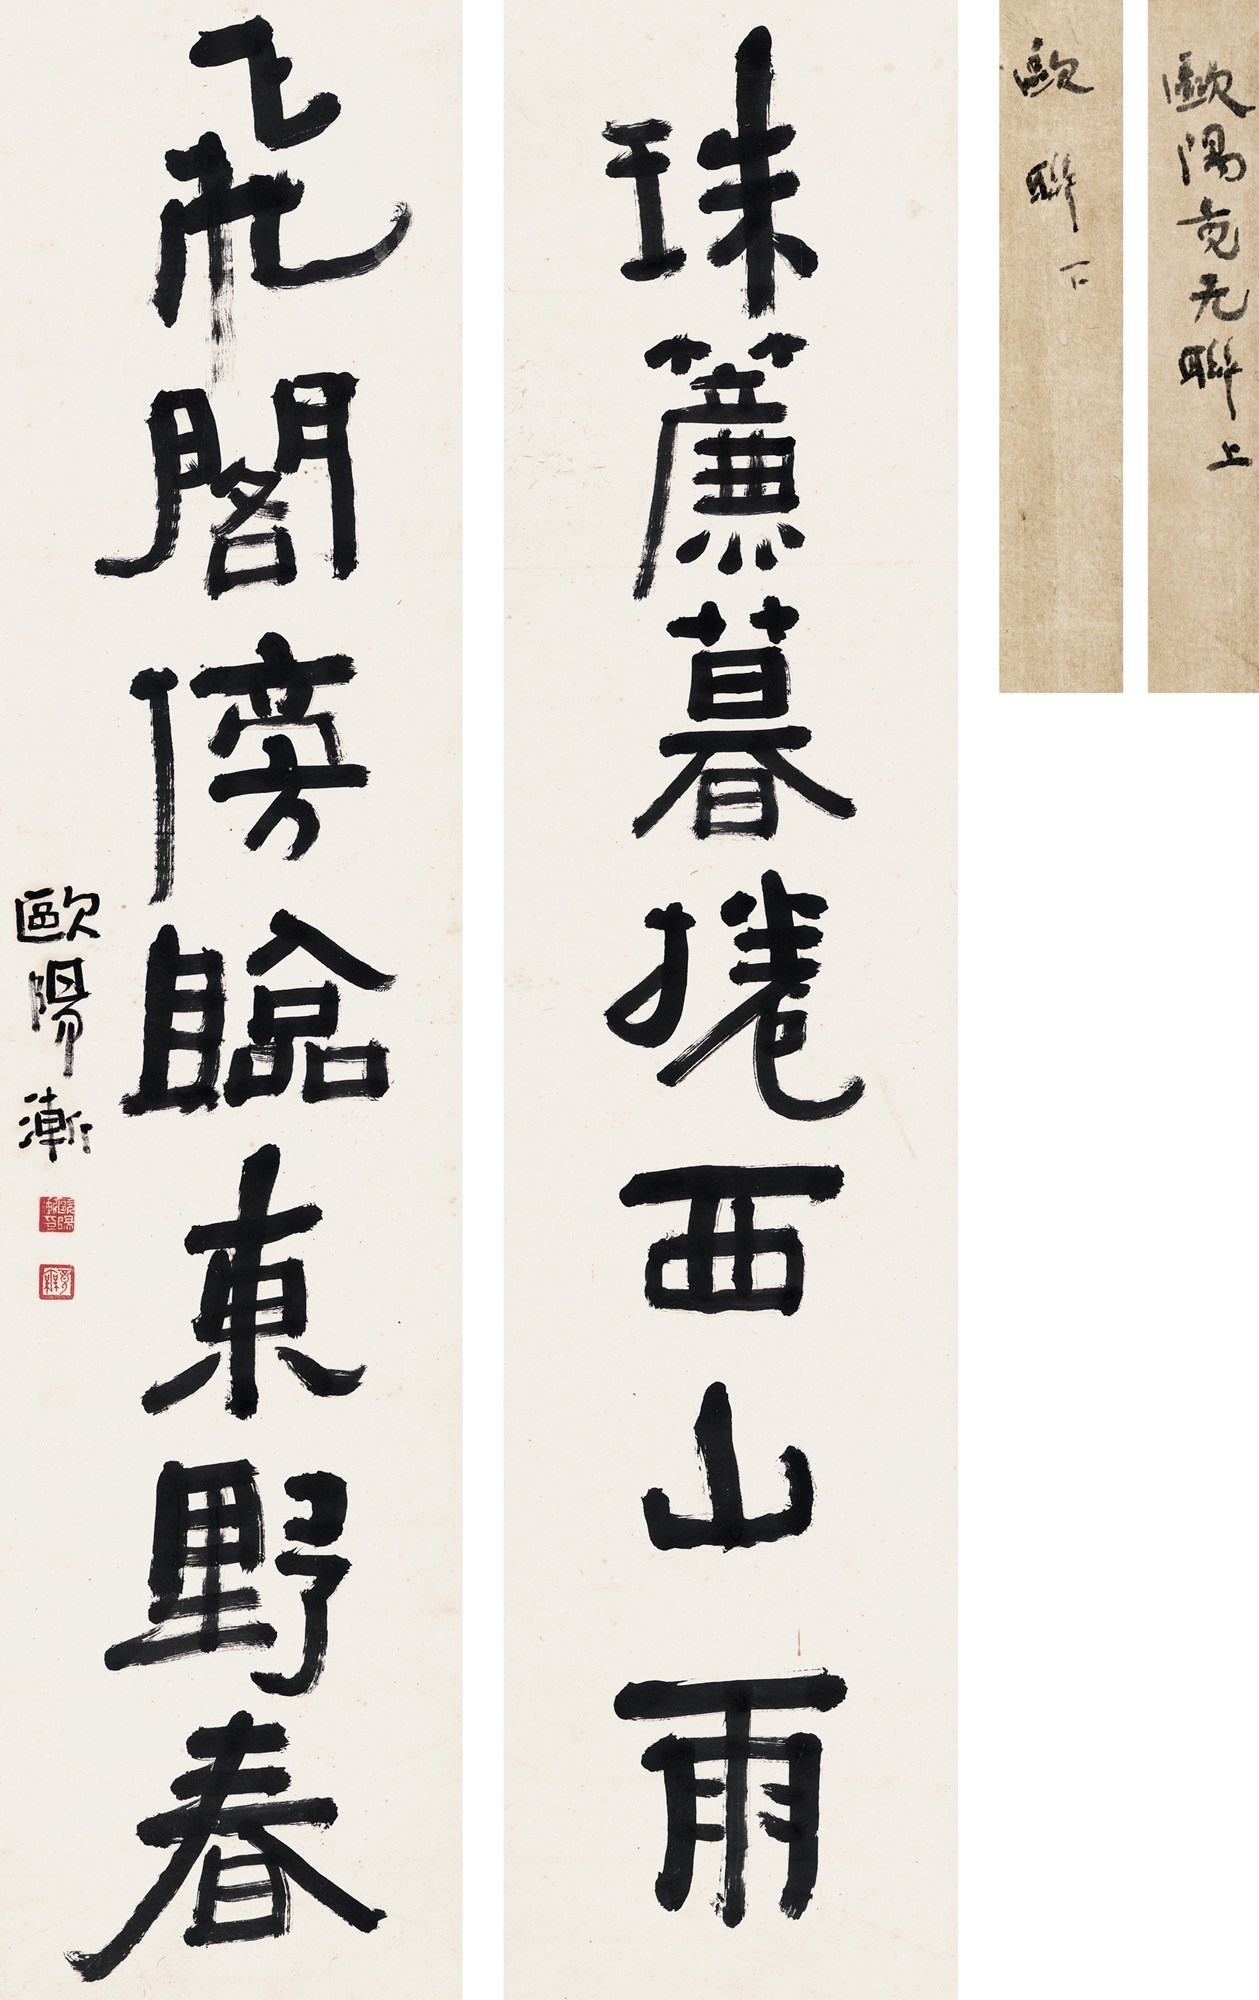 歐陽竟无聯上
歐聯下
珠簾暮捲西山雨
飛閣傍臨東野春
歐陽漸